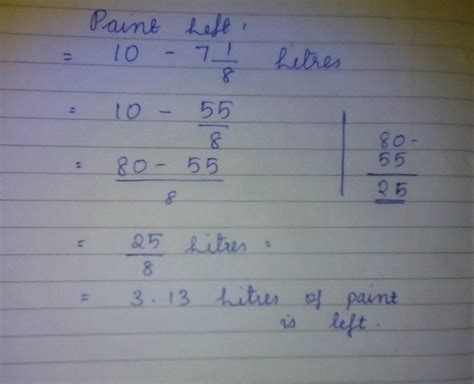 Paint Left.
= 10 - 7 1/8 Litres
= 10 - 55/8
= 80 - 55/8
80 -
55
25
= 25/8 Litres =
= 3.13 Litres of paint
is left.